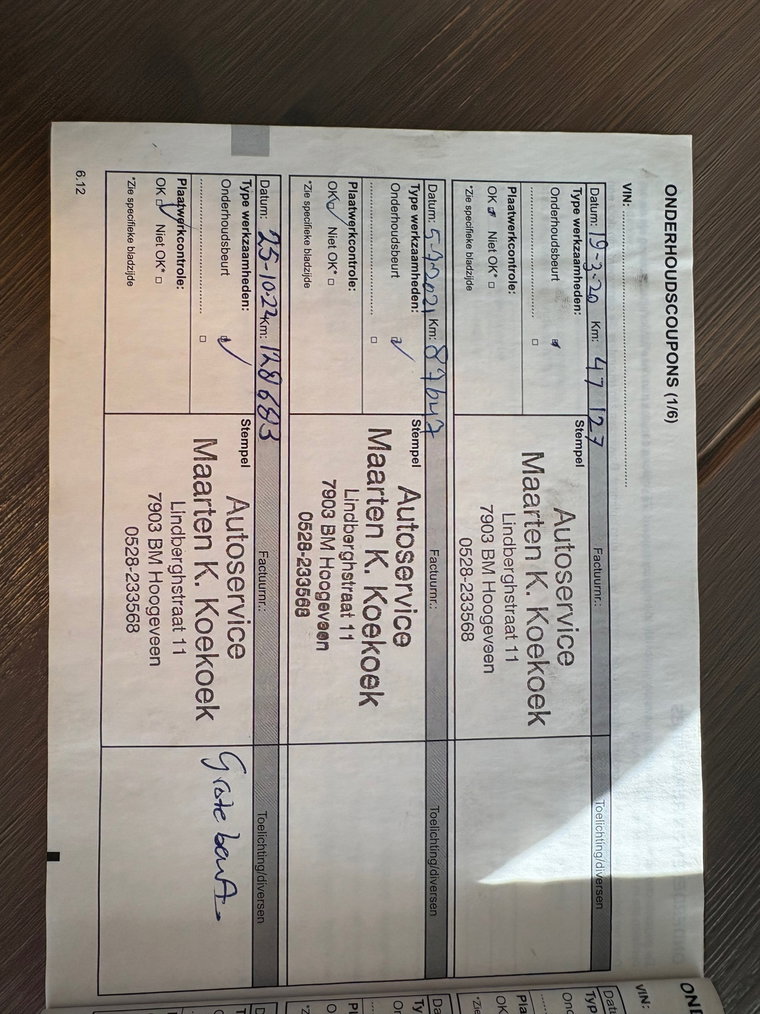 ONDERHOUDSCOUPONS (1/6)
VIN:
Datum: 19-3-20 Km: 47 127
Type werkzaamheden:
Onderhoudsbeurt
Plaatwerkcontrole:
OK Niet OK*
*Zie specifieke bladzijde
Factuurnr.:
Stempel
Autoservice
Maarten K. Koekoek
Lindberghstraat 11
7903 BM Hoogeveen
0528-233568
Toelichting/diversen
Datum: 5-7-2021 Km: 87647
Type werkzaamheden:
Onderhoudsbeurt
Plaatwerkcontrole:
OK Niet OK*
*Zie specifieke bladzijde
Factuurnr.:
Stempel
Autoservice
Maarten K. Koekoek
Lindberghstraat 11
7903 BM Hoogeveen
0528-233568
Toelichting/diversen
Datum: 25-10-22 Km: 128683
Type werkzaamheden:
Onderhoudsbeurt
Plaatwerkcontrole:
OK Niet OK*
*Zie specifieke bladzijde
Factuurnr.:
Stempel
Autoservice
Maarten K. Koekoek
Lindberghstraat 11
7903 BM Hoogeveen
0528-233568
Toelichting/diversen
Grote beurt
6.12
VIN: